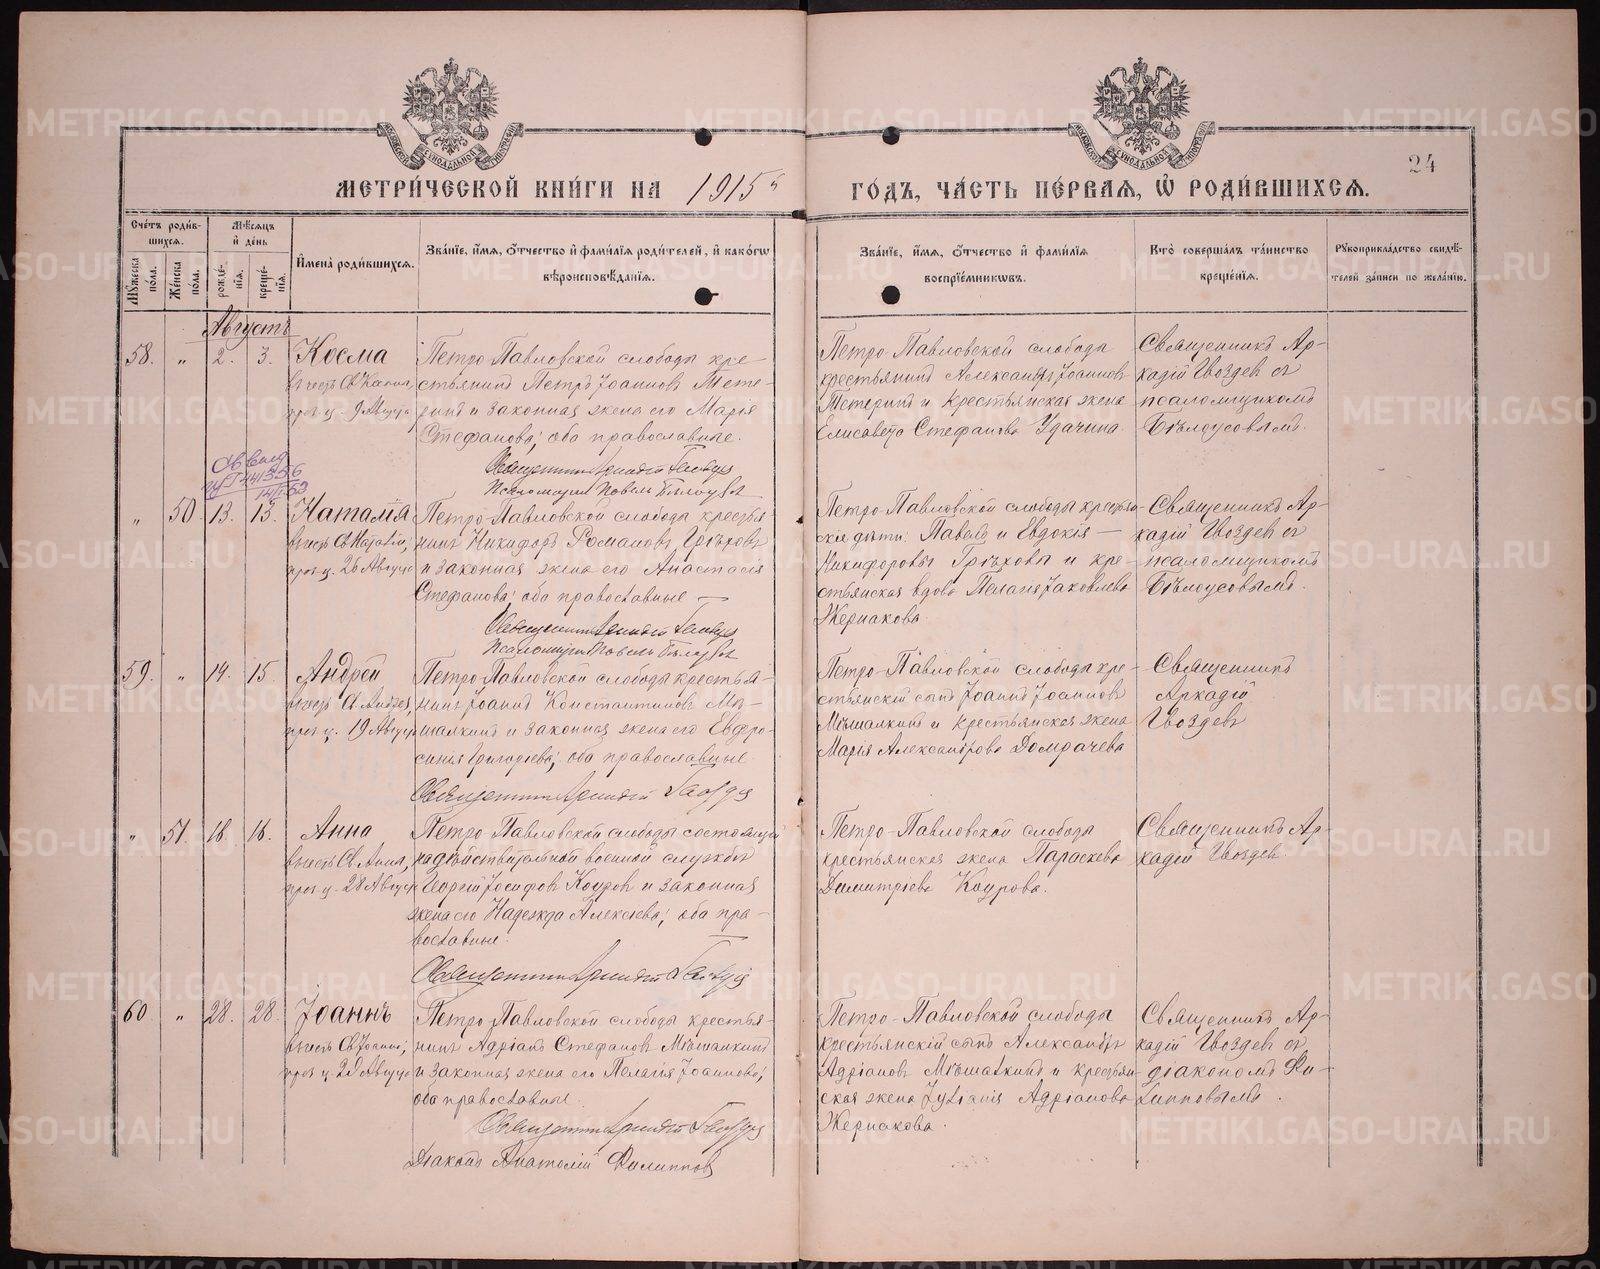 МЕТРИ́ЧЕСКОЙ КНИ́ГИ НА 1915й ГО́ДЪ, ЧА́СТЬ ПЕ́РВАЯ, Ѡ҆ РОДИ́ВШИХСЯ.
24
Сче́тъ роди́вшихся.
Мꙋ́жеска пола.
Же́нска пола.
Мѣ́сяцъ и҆ де́нь
рожде́нїѧ.
креще́нїѧ.
И҆мена̀ роди́вшихся.
Зва́нїе, и҆́мя, ѻ҆́тчество и҆ фами́лїя роди́телей, и҆ како́гѡ
вѣроисповѣ́данїя.
Зва́нїе, и҆́мя, ѻ҆́тчество и҆ фами́лїя
воспрїе́мникѡвъ.
Кто̀ соверша́лъ та́инство
креще́нїя.
Рꙋкоприкла́дство свидѣ́-
телей за́писи по жела́нїю.
Августъ
58. " 2. 3. Косма
въ честь Св. Космы,
празд. 9 Августа
Петро-Павловской слободы кре-
стьянинъ Петръ Іоанновъ Тете-
ринъ и законная жена его Марія
Стефанова; оба православные.
Священникъ Аркадій Гвоздев
Псаломщикъ Павелъ Белоусов
Петро-Павловской слободы
крестьянинъ Александръ Іоанновъ
Тетеринъ и крестьянская жена
Елисавета Стефанова Удачина.
Священникъ Ар-
кадій Гвоздевъ съ
псаломщикомъ
Бѣлоусовымъ.
" 50 13. 13. Наталія
въ честь Св. Наталіи,
празд. 26 Августа
Петро-Павловской слободы крестья-
нинъ Никифоръ Романовъ Грѣховъ
и законная жена его Анастасія
Стефанова; оба православные
Священникъ Аркадій Гвоздев
Псаломщикъ Павелъ Белоусов
Петро-Павловской слободы крестьян-
скіе дѣти: Павелъ и Евдокія
Никифоровы Грѣховы и кре-
стьянская вдова Пелагія Іаковлева
Жернакова.
Священникъ Ар-
кадій Гвоздевъ съ
псаломщикомъ
Бѣлоусовымъ.
59. " 14. 15. Андрей
въ честь Св. Андрея,
празд. 19 Августа
Петро-Павловской слободы крестья-
нинъ Іоаннъ Константиновъ Мѣ-
шалкинъ и законная жена его Евфро-
синія Григорьева; оба православные
Священникъ Аркадій Гвоздев
Петро-Павловской слободы кре-
стьянскій сынъ Іоаннъ Іоанновъ
Мѣшалкинъ и крестьянская жена
Марья Александрова Домрачева
Священникъ
Аркадій
Гвоздевъ
" 51. 16. 16. Анна
въ честь Св. Анны,
празд. 28 Августа
Петро-Павловской слободы состоящій
на дѣйствительной военной службѣ
Георгій Іосифовъ Коуровъ и законная
жена его Надежда Алексѣева; оба пра-
вославные.
Священникъ Аркадій Гвоздев
Петро-Павловской слободы
крестьянская жена Параскева
Димитріева Коурова.
Священникъ Ар-
кадій Гвоздев
60 " 28. 28. Іоаннъ
въ честь Св. Іоанна,
празд. 29 Августа
Петро-Павловской слободы крестья-
нинъ Адріанъ Стефановъ Мѣшалкинъ
и законная жена его Пелагія Іоаннова;
оба православные.
Священникъ Аркадій Гвоздев
Діаконъ Анатолій Филиппов
Петро-Павловской слободы
крестьянскій сынъ Александръ
Адріановъ Мѣшалкинъ и крестьян-
ская жена Іуліанія Адріанова
Жернакова.
Священникъ Ар-
кадій Гвоздевъ съ
діакономъ Фи-
липповымъ.
METRIKI.GASO-URAL.RU